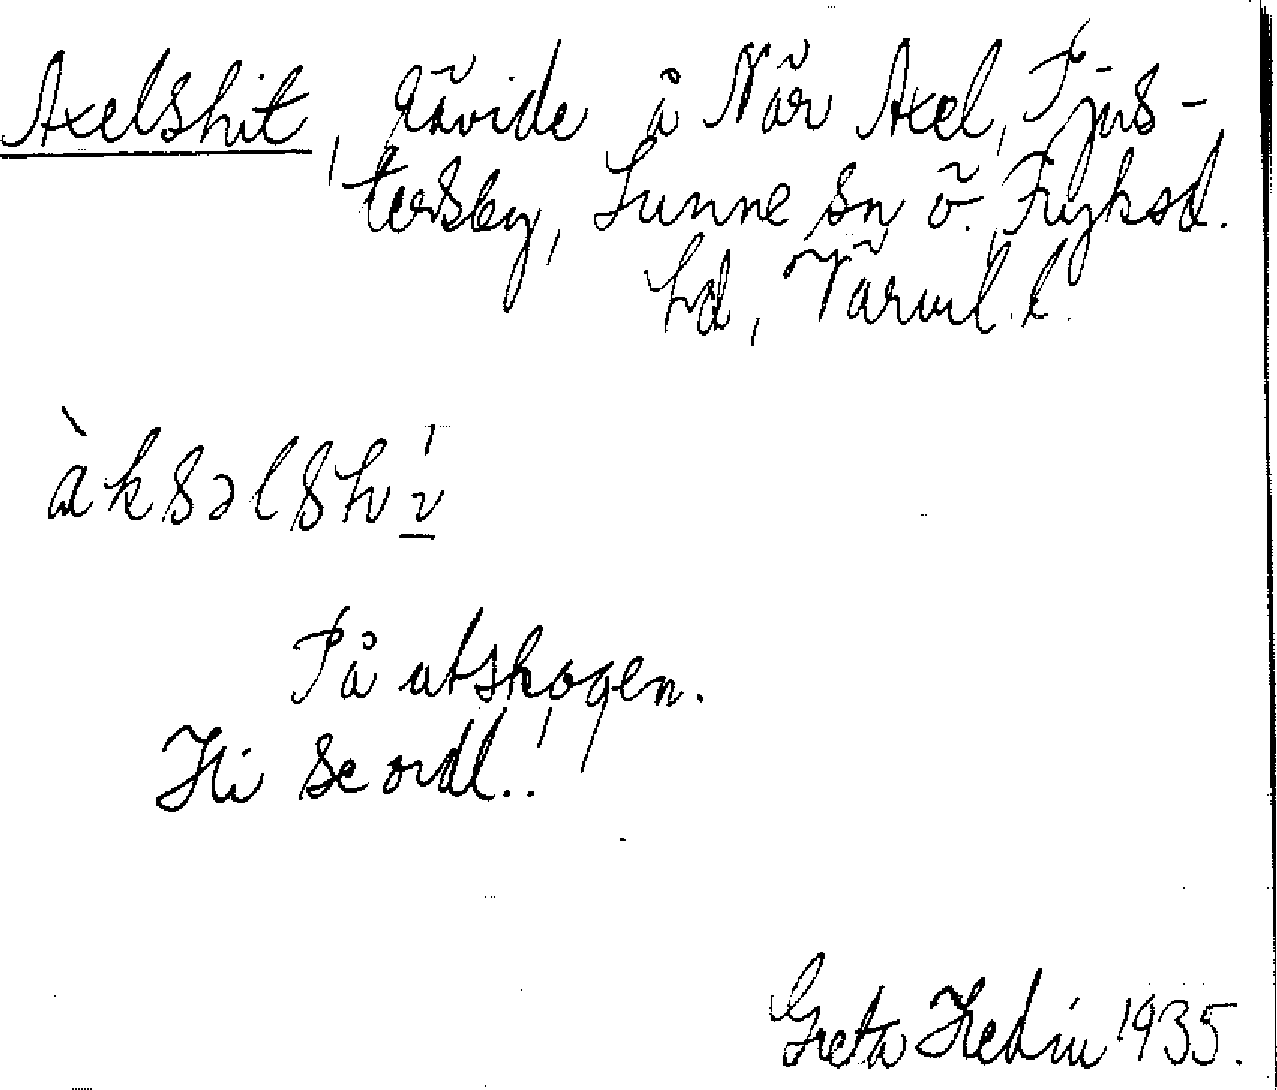 Axelshit, råvide å När Axel, Tjus-
tersby, Sunne sn Ö. Fryksd.
hd, Värml. l.
àksəlshí
På utskogen.
Hi se ordl..!
Greta Hedin 1935.